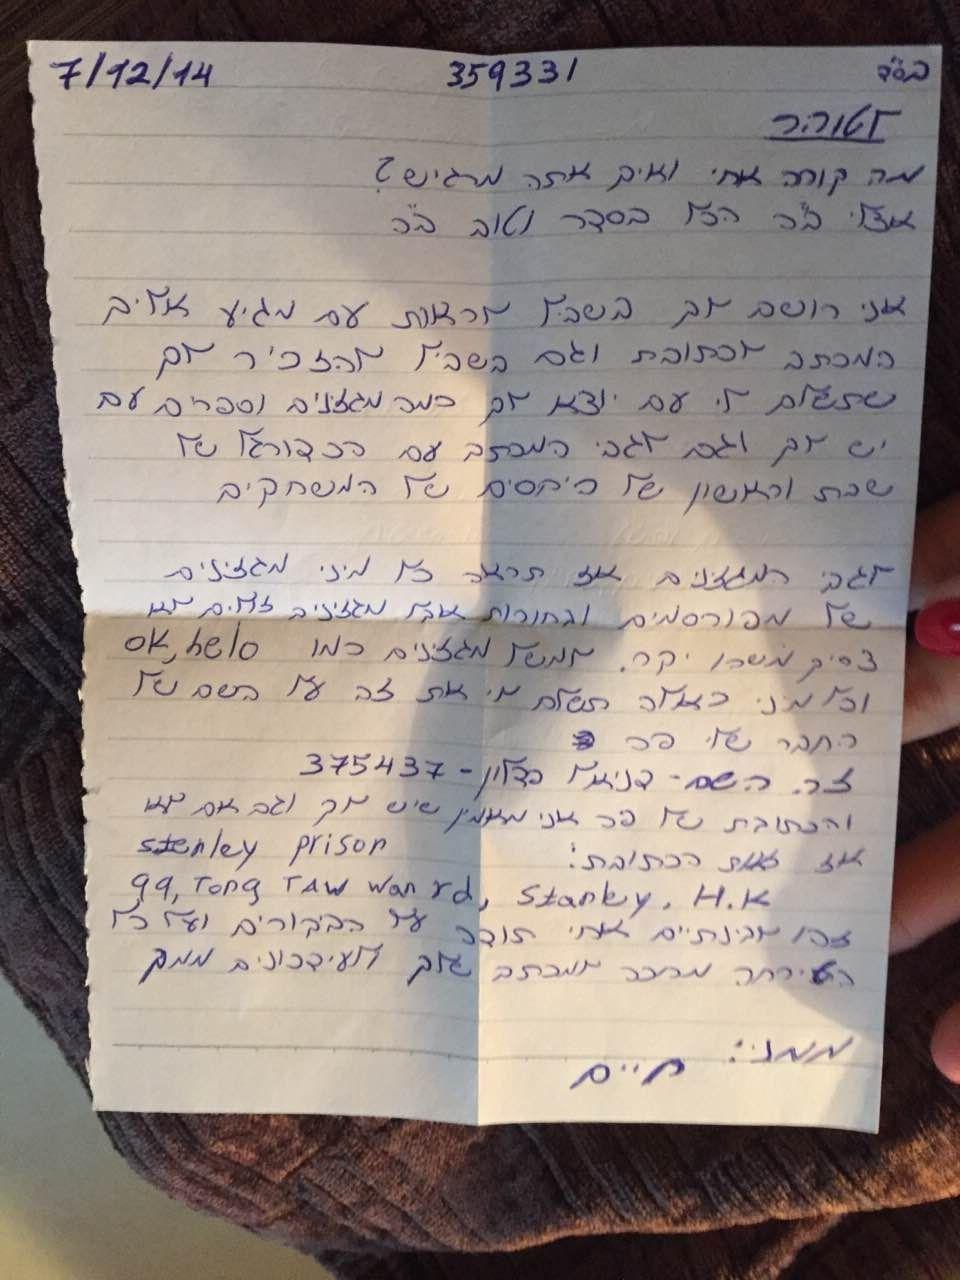 7/12/14 359331 בס"ד
לטוהר
מה קורה אחי ואיך אתה מרגיש?
אצלי ב"ה הכל בסדר וטוב ב"ה
אני רושם לך בשביל לראות עם מגיע אליך
המכתב לכתובת וגם בשביל להזכיר לך
שתשלח לי עם יוצא לך כמה מגזינים וספרים עם
יש לך וגם לגבי המכתב עם הכדורגל של
שבת וראשון של היחסים של המשחקים
לגבי המגזינים אז תראה כל מיני מגזינים
של מפורסמים ובחורות אבל מגזינים זולים לא
צריך משהו יקר. למשל מגזינים כמו ok, helo
וכל מיני כאלה תשלח לי את זה על השם של
החבר שלי פה
זה. השם - דניאל - 375437
והכתובת של פה אני מאמין שיש לך וגם אם לא
אז זאת הכתובת: stenley prison
99, Tong TAW wan rd, Stanley. H.K
זהו בינתיים אחי תודה על הביקורים ועל כל
הטירחה מחכה למכתב שלך ולעידכונים ממך
ממני: חיים